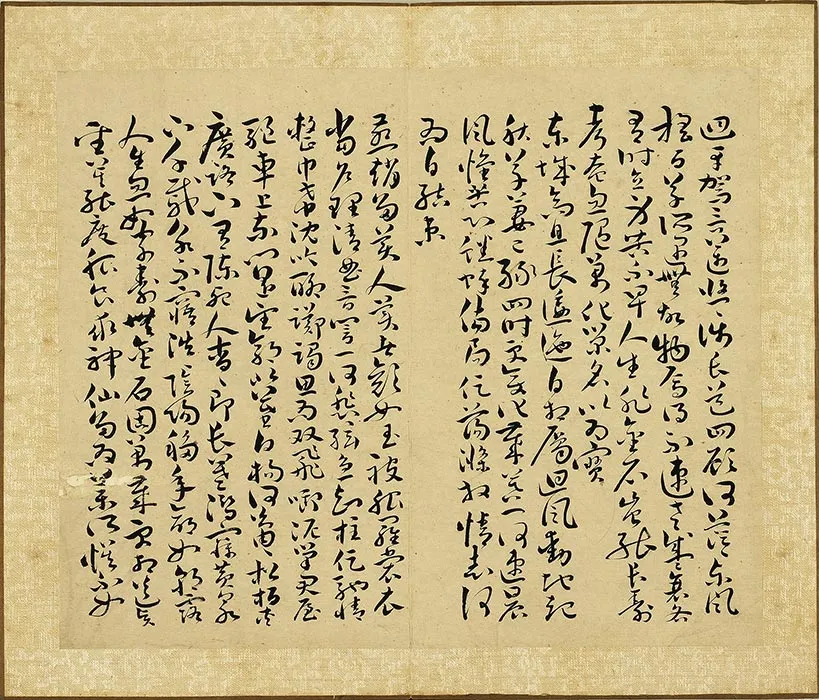 迴車駕言邁悠悠涉長道四顧何茫茫東風
搖百草所遇無故物焉得不速老盛衰各
有時立身苦不早人生非金石豈能長壽
考奄忽隨萬化榮名以為寶
東城高且長逶迤自相屬迴風動地起
秋草萋已綠四時更變化歲暮一何速晨
風懷苦心蟋蟀傷局促蕩滌放情志何
為自結束
燕趙多美人美者顏如玉被服羅裳衣
當戶理清曲音響一何悲絃急知柱促馳情
整巾帶沈吟聊躑躅思為双飛啣泥巢君屋
驅車上東門遙望郭北墓白楊何蕭蕭松柏夾
廣路下有陳死人杳杳即長暮潛寐黃泉
下千載永不寤浩浩陰陽移年命如朝露
人生忽如寄壽無金石固萬歲更相送賢
聖莫能度服食求神仙多為藥所誤不如